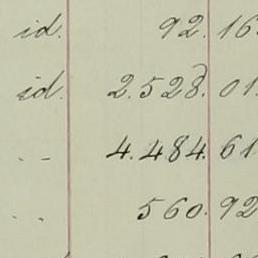 id. 92. 16.
id. 2.528. 01.
.. 4.484. 61
.. 560. 92